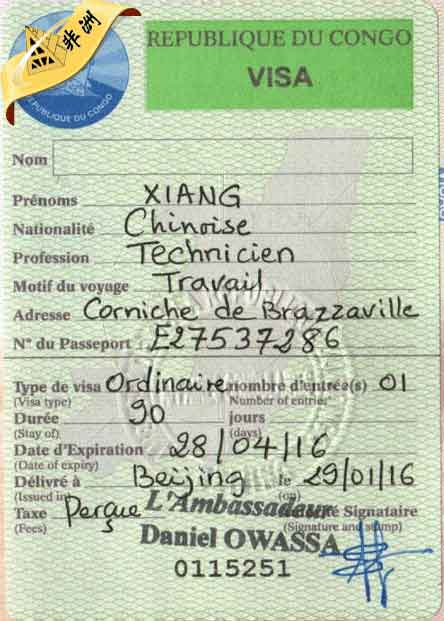 非洲
REPUBLIQUE DU CONGO
REPUBLIQUE DU CONGO
VISA
Nom
Prénoms XIANG
Nationalité Chinoise
Profession Technicien
Motif du voyage Travail
Adresse Corniche de Brazzaville
N° du Passeport : E27537286
Type de visa Ordinaire nombre d'entrée(s) 01
(Visa type) Number of entries
Durée 90 jours
(Stay of) (days)
Date d'Expiration 28/04/16
(Date of expiry)
Délivré à Beijing le 29/01/16
(Issued in) (on)
L'Ambassadeur
Taxe Perçue Signataire
(Fees) (Signature and stamp)
Daniel OWASSA
0115251